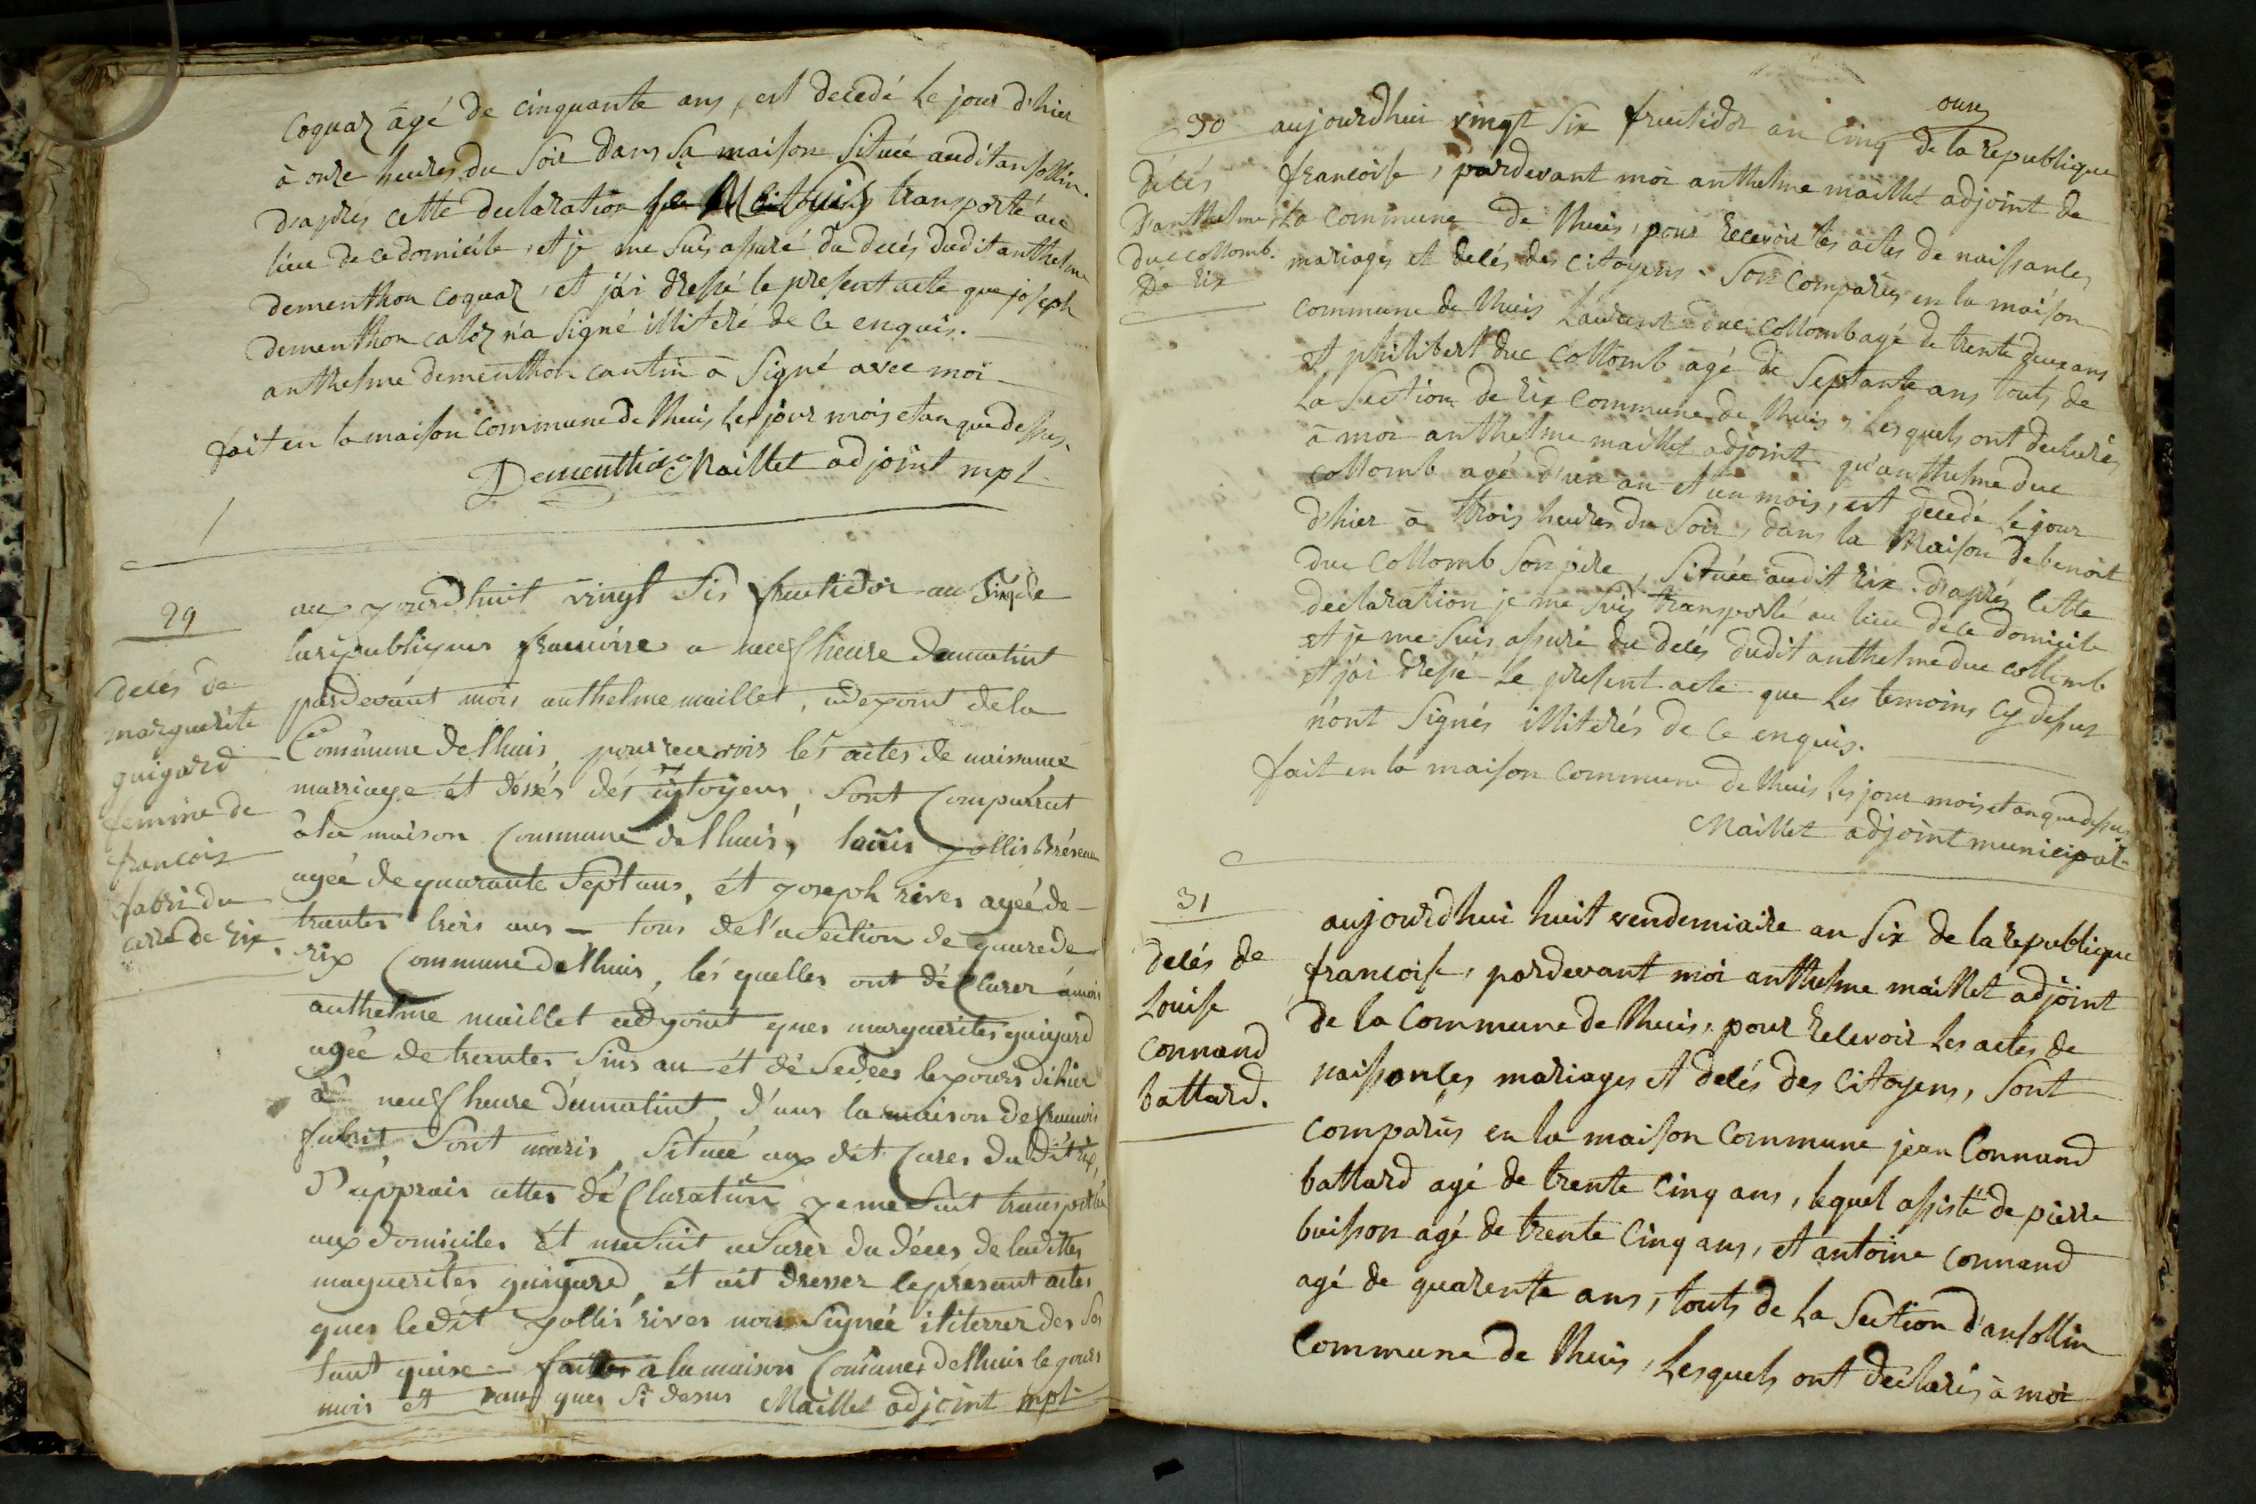 coquaz âgé de cinquante ans, est decedé le jour d'hier
à onze heures du soir dans sa maison située audit ansollin.
d'aprés cette declaration transporté au
lieu de ce domicile, et je me suis assuré du decés dudit anthelme
dementhon coquaz, et j'ái dressé le present acte que joseph
dementhon caloz n'a signé illiteré de ce enquis.
anthelme dementhon cantin à signé avec moi
fait en la maison commune de lhuis les jour mois et an que dessus.
Dementhon Maillet adjoint mpl
29
decés de
marguerite
guigard
femme de
francois
fabri du
carre de rix.
aux jourdhuit vingt sis fructidor an sinq de
la republiques francoise a neuf heure dumatint
pardevant mois anthelme maillet, adejoint de la
Commune delhuis, pour recevois les actes de naissance
marriage ét déssés dés citoyens, sont Comparrut
à la maison Commune delhuis, louis jollis
ageé de quarante sept ans, ét joseph rives ageé de
trantes trois ans — tous de la section de quare de
rix Commune delhuis, lés quelles ont dé Clarer à mois
anthelme maillet adjoint ques marguerites guigard
ageé de trantes sins an ét dé sedeés le jours dihier
à neuf heure dumatint, d'ans la maison de francois
fabrit, sont maris, situeé aux dit Cares dudit rix,
D'apprais cettes dé Claration je me suit transportée
aux domiciles ét me suit asurer du déces de ladittes
maguerites guigard, ét ait dresser le présant actes
ques ledit jollis rives non signeé ilitterrer des se
tant quise faittes a la maison Comunes delhuis le jours
mois et l'ans ques si desus Maillet adjoint mpl
30
décés
d'anthelme
duc collomb.
de rix
aujourdhui vingt six fructidor an cinq de la republique
francoise, pardevant moi anthelme maillet adjoint de
la commune de lhuis, pour recevoir les actes de naissances
mariages et decés des citoyens. sont comparus en la maison
commune de lhuis laurent duc collomb agé de trente deux ans
et philibert duc collomb agé de septante ans touts de
la section de rix commune de lhuis, lesquels ont declarés
à moi anthelme maillet adjoint qu'anthelme duc
collomb agé d'un an et un mois, est decedé le jour
d'hier à trois heures du soir, dans la Maison de benoit
duc collomb son pere, située audit rix. d'aprés cette
declaration je me suis transporté au lieu de ce domicile
et je me suis assuré du decés dudit anthelme duc collomb
et j'ái dressé le present acte que les temoins cy dessus
n'ont signés illiterés de ce enquis.
fait en la maison commune de lhuis les jour mois et an que dessus
Maillet adjoint municipal
31
decés de
louise
connand
battard.
aujourdhui huit vendemiaire an six de la republique
francoise, pardevant moi anthelme maillet adjoint
de la commune de lhuis, pour recevoir les actes de
naissances mariages et decés des citoyens, sont
comparus en la maison commune jean connand
battard agé de trente cinq ans, lequel assisté de pierre
buisson agé de trente cinq ans, et antoine connand
agé de quarente ans, touts de la section d'ansollin
commune de lhuis, lesquels ont declarés à moi